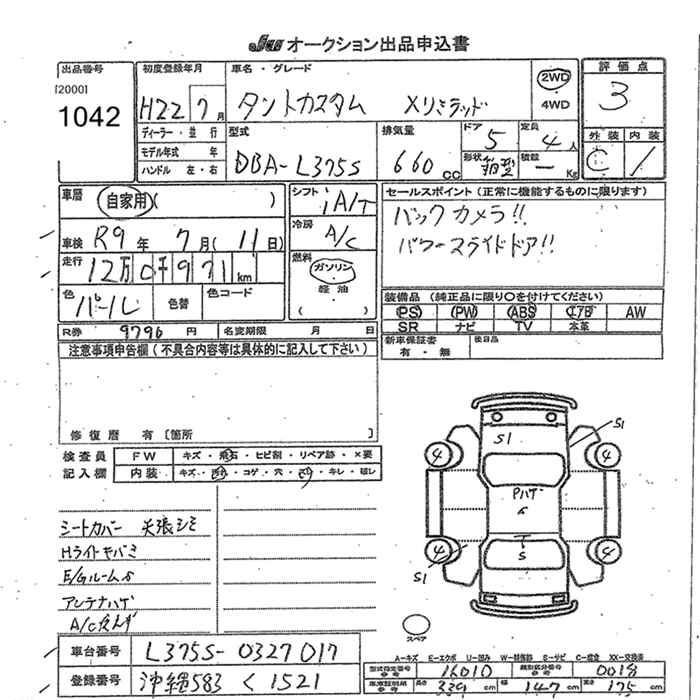 JU オークション出品申込書
出品番号
[2000]
1042
初度登録年月
H22 7月
車名・グレード
タントカスタム Xリミテッド
2WD
4WD
評価点
3
外装 内装
C
ディーラー・並行
モデル年式 年
ハンドル 左・右
型式
DBA-L375S
排気量
660 CC
ドア
5
定員
4人
形状
箱型
積載
- Kg
車歴
自家用( )
車検 R9年 7月(11日)
走行
12万0千971km
色
パール
色替
色コード
R券 9790円
名変期限 月 日
シフト
IA/T
冷房
A/C
燃料
ガソリン
軽油
( )
セールスポイント(正常に機能するものに限ります)
バックカメラ!!
パワースライドドア!!
装備品(純正品に限り○を付けてください)
PS PW ABS エアB AW
SR ナビ TV 本革
新車保証書
有・無
後日品
注意事項申告欄(不具合内容等は具体的に記入して下さい)
修復歴 有〔箇所 〕
検査員
記入欄
FW キズ・飛石・ヒビ割・リペア跡・×要
内装 キズ・汚れ・コゲ・穴・スレ・キレ・破レ
シートカバー 天張シミ
Hライトキバミ
E/Gルーム
アンテナハゲ
S1
S1
4
4
Pハゲ
S
4
4
S1
スペア
A=キズ E=エクボ U=凹み W=補修跡 S=サビ C=腐食 XX=交換済
車台番号 L375S-0327017
登録番号 沖縄583 く 1521
型式指定番号
参考
16010
類別区分番号
参考
0018
長さ 339 cm
幅 147 cm
高さ 175 cm